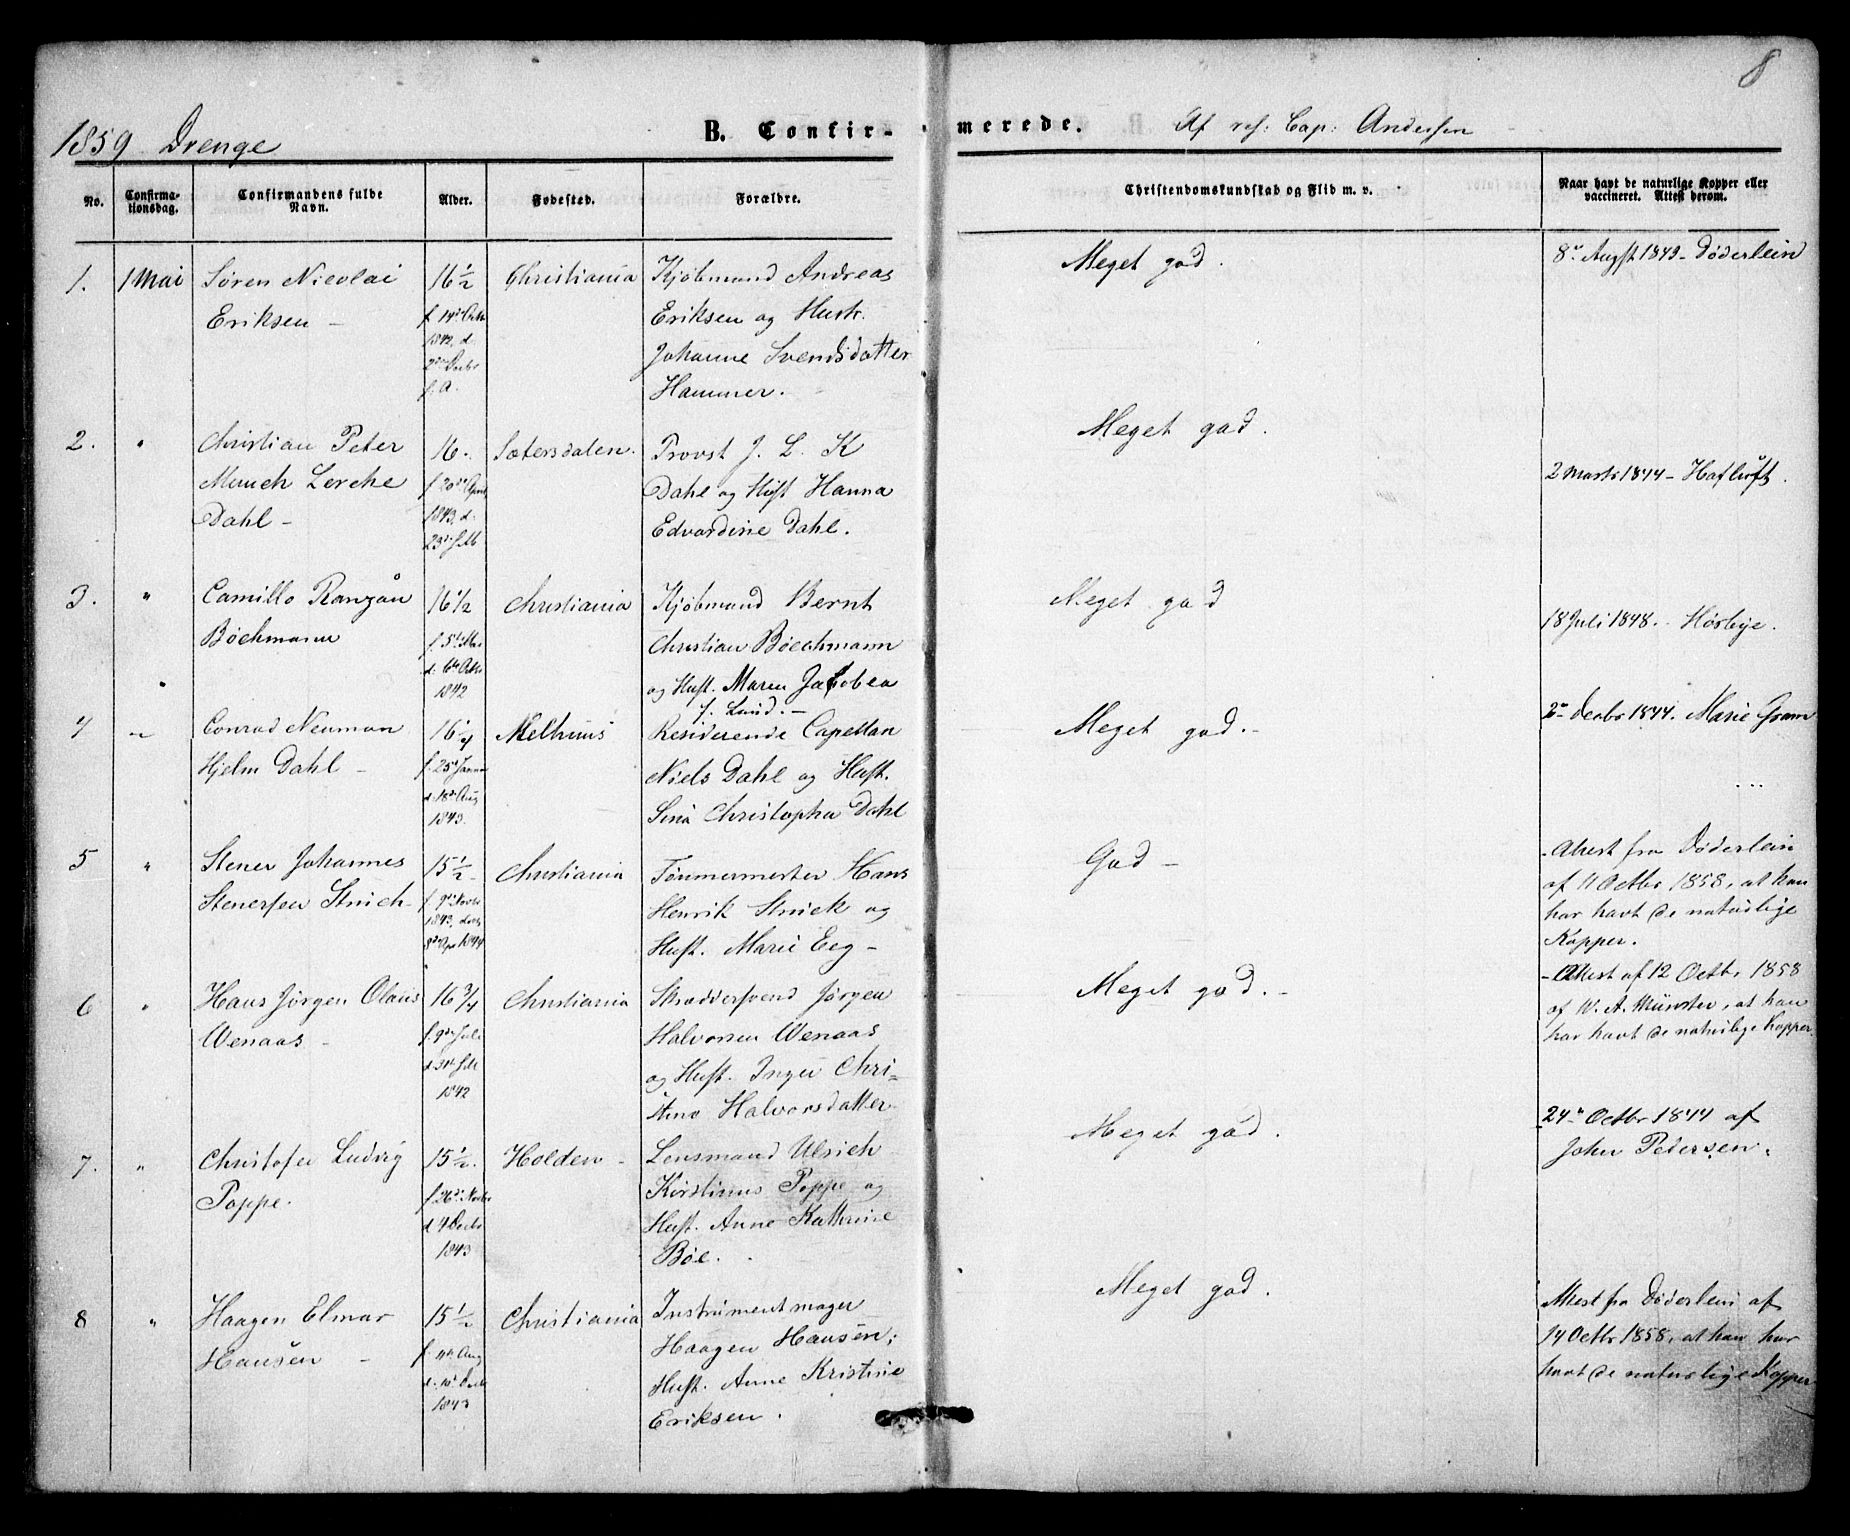 8
1859 Drenge
B. Confirmerede.
Af res: Cap: Andersen
No.
Confirma-
tionsdag.
Confirmandens fulde
Navn.
Alder.
Fødested.
Forældre.
Christendomskundskab og Flid m. v.
Naar havt de naturlige Kopper eller
vaccineret. Attest derom.
1.
1 Mai
Søren Nicolai
Eriksen –
16 1/2
f. 14de Octbr
1842, d.
s. A.
Christiania
Kjøbmand Andreas
Eriksen og Hustr.
Johanne Svendsdatter
Hammer.
Meget god.
8de Augst 1843 – Døderlein
2.
"
Christian Peter
Munch Lerche
Dahl –
16.
f. 20de April
1843, d.
23de Juli
Sætersdalen.
Provst J. L. K
Dahl og Hust Hanna
Edvardine Dahl.
Meget god.
2 Marts 1844 – Hafluft.
3.
"
Camillo Ranzau
Bøchmann
16 1/2
f. 5te Mai
d. 6te Octbr
1842
Christiania
Kjøbmand Bernt
Christian Bøechmann
og Hust. Maren Jacobea
f. Lund. –
Meget god
18 Juli 1848. Hörbye.
4
"
Conrad Neuman
Hjelm Dahl –
16 1/4
f. 25de Januar
d. 18de Aug
1843.
Melhuus
Residerende Capellan
Niels Dahl og Hust.
Sina Christopha Dahl
Meget god. –
2den Decbr 1844. Marie Gram
5
"
Stener Johannes
Stenersen Strick
15 1/2
f. 9de Novbr
1843, døbt
8de Apr 1844
Christiania
Tømmermester Hans
Henrik Strick og
Hust. Marie Eeg –
God –
– Attest fra Døderlein
af 11 Octbr 1858, at han
har havt de naturlige
Kopper.
6
"
Hans Jørgen Olaus
Wenaas –
16 3/4
f. 9de Juli
d 31te Juli
1842
Christiania
Skræddersvend Jørgen
Halvorsen Wenaas
og Hust. Inger Chri-
stine Halvorsdatter
Meget god. –
– Attest af 12 Octbr 1858
af W. A. Münster, at han
har havt de naturlige Kopper
7.
"
Christofer Ludvig
Poppe.
15 1/2.
f. 26de Novbr
d 4 Decbr
1843
Holden –
Lensmand Ulrich
Kirstinus Poppe og
Hust. Anne Kathrine
Bøe.
Meget god.
24de Octbr 1844 af
John Pedersen.
8
"
Haagen Elmar
Hansen –
15 1/2
f. 4de Aug
d. 10de Decbr
1843
Christiania
Instrumentmager
Haagen Hansen;
Hust. Anne Kristine
Eriksen.
Meget god.
Attest fra Døderlein af
14 Octbr 1858, at han har
havt de naturlige Kopper